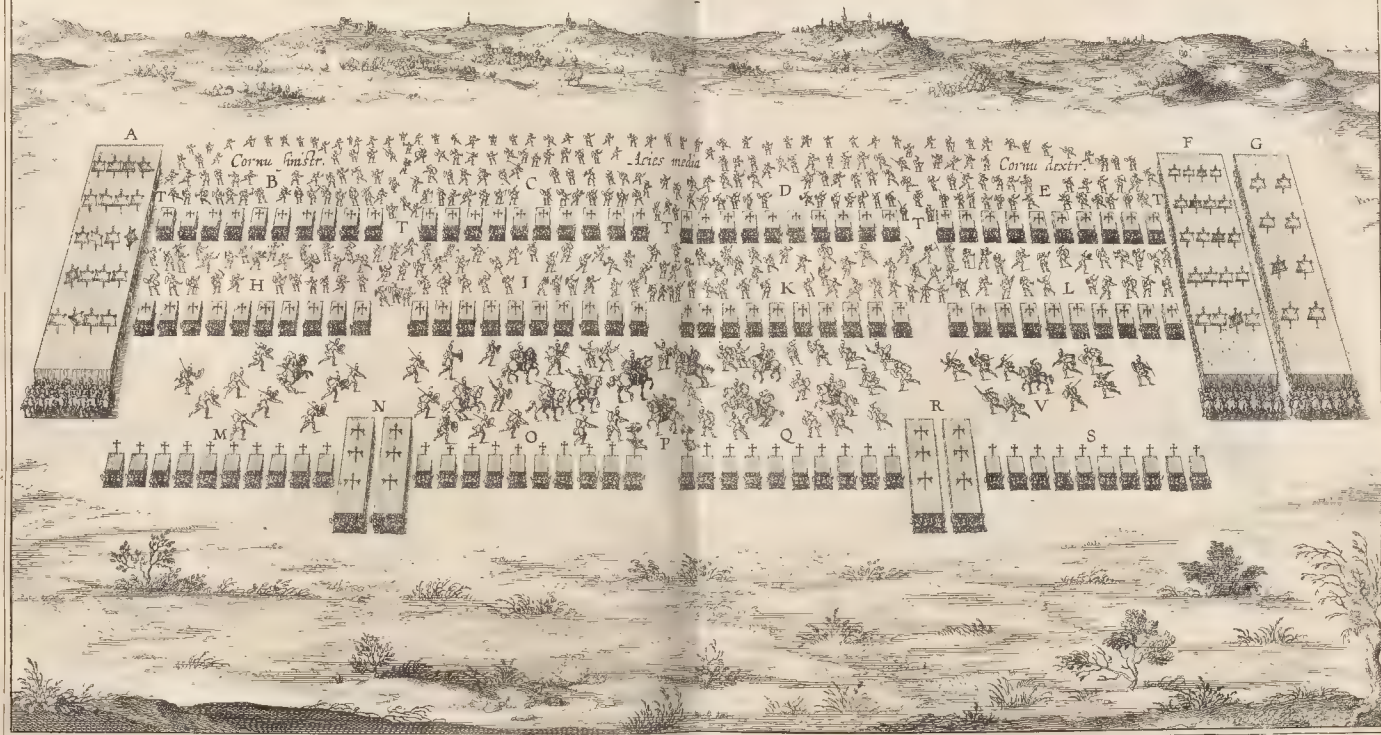 A
F G
Cornu sinistr. Acies media Cornu dextr.
B C D E
T T T T T
H I K L
N R V
M O P Q S